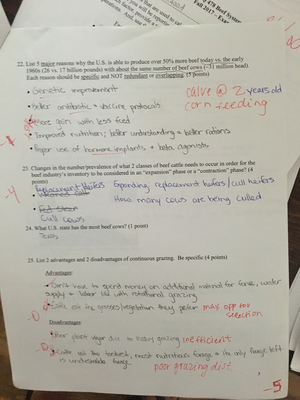 22. List 5 major reasons why the U.S. is able to produce over 50% more beef today vs. the early
1960s (26 vs. 17 billion pounds) with about the same number of beef cows (~31 million head).
Each reason should be specific and NOT redundant or overlapping. (5 points)
• Genetic improvement
calve @ 2 years old
• Better antibiotic + vaccine protocols
corn feeding
more gain with less feed
• Improved nutrition; better understanding = better rations
• Proper use of hormone implants + beta agonists
23. Changes in the number/prevalence of what 2 classes of beef cattle needs to occur in order for the
beef industry's inventory to be considered in an "expansion" phase or a "contraction" phase? (4
points)
-4
Replacement heifers
Expanding replacement heifers / cull heifers
How many cows are being culled
• Cull cows
24. What U.S. state has the most beef cows? (1 point)
Texas
25. List 2 advantages and 2 disadvantages of continuous grazing. Be specific (4 points)
Advantages:
• Don't have to spend money on additional material for fence, water
supply + labor like with rotational grazing
• Cattle eat the grasses/vegetation they prefer
max opp for
selection
Disadvantages:
• Poor plant vigor due to patchy grazing
inefficient
• Cattle eat the tenderest, most nutritious forage + the only forage left
is undesirable forage
poor grazing dist
-5